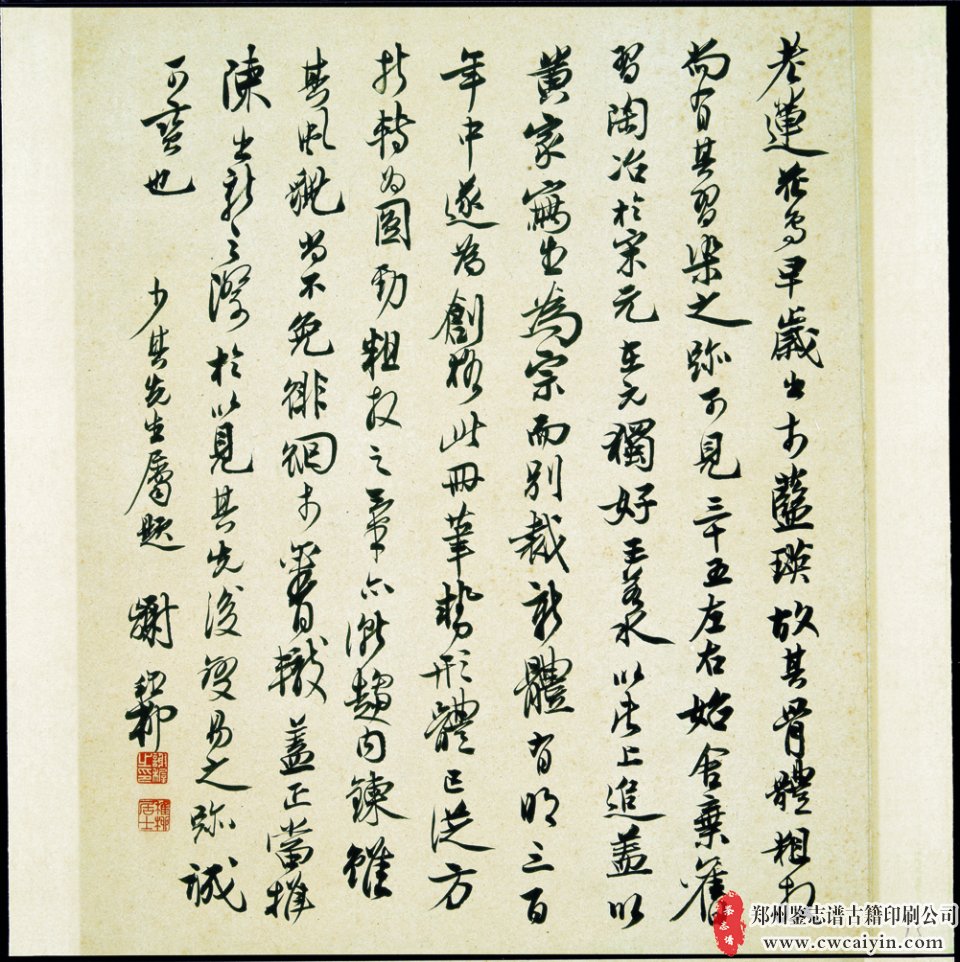 老蓮花鳥早歲出於藍瑛故其骨體粗
尚有其習染之跡可見三十五左右始舍棄舊
習陶冶於宋元在元獨好王若水以此上追蓋以
黃家寫生為宗而別裁新體有明三百
年中遂為創格此冊筆勢形體已從方
折轉為圓勁粗放之筆亦漸趨內鍊雖
其風貌尚不免徘徊於舊轍蓋正當推
陳出新之際於以見其先後變易之跡誠
可寶也
少其先生屬題 謝稚柳
稚柳居士
鉴志谱
郑州鉴志谱古籍印刷公司
www.cwcaiyin.com